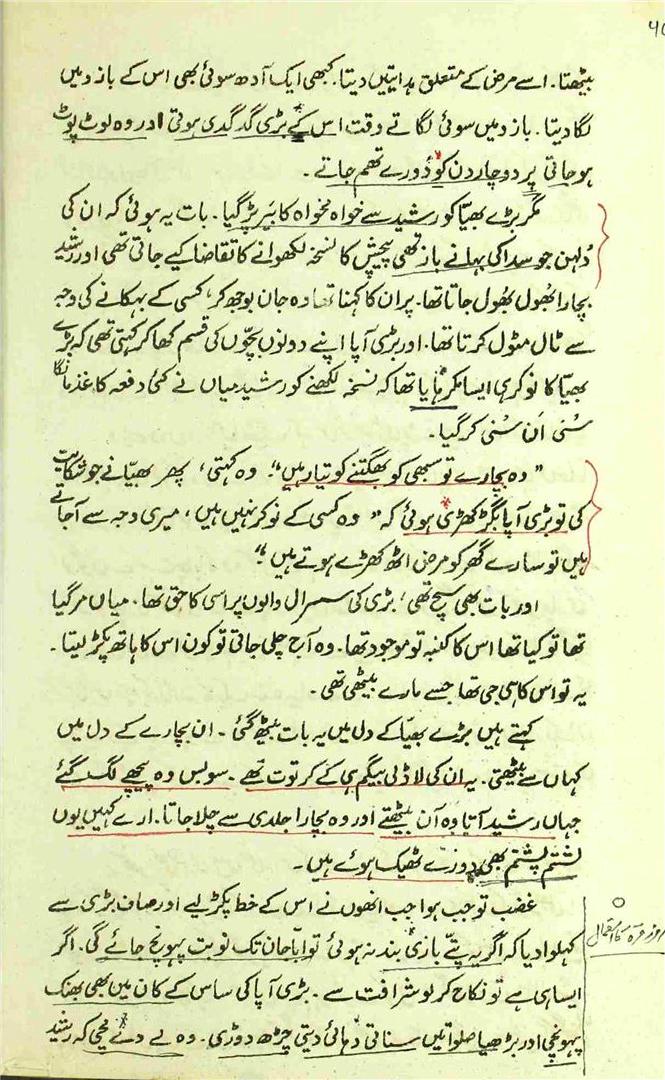 بیٹھتا۔ اسے مرض کے متعلق ہدایتیں دیتا۔ کبھی ایک آدھ سوئی بھی اس کے بازو میں
لگا دیتا۔ بازو میں سوئی لگاتے وقت اس کے بڑی گدگدی ہوتی اور وہ لوٹ پوٹ
ہو جاتی پر دو چار دن کو دورے تھم جاتے۔
مگر بڑے بھیّا کو رشید سے خواہ مخواہ کا بیَر پڑ گیا۔ بات یہ ہوئی کہ ان کی
دُلہن جو سدا کی بہانے باز تھی پیچش کا نسخہ لکھوانے کا تقاضا کیے جاتی تھی اور رشید
بچارا بھُول بھُول جاتا تھا۔ پر ان کا کہنا تھا وہ جان بوجھ کر، کسی کے بہکانے کی وجہ
سے ٹال مٹول کرتا تھا۔ اور بڑی آپا اپنے دونوں بچّوں کی قسم کھا کر کہتی تھی کہ بڑے
بھیّا کا نوکر ہی ایسا مکر ہایا تھا کہ نسخہ لکھنے کو رشید میاں نے کئی دفعہ کاغذ مانگا
سُنی اَن سُنی کر گیا۔
"وہ بچارے تو سبھی کو بھگتنے کو تیار ہیں"۔ وہ کہتی، پھر بھیّا نے جو شکایت
کی تو بڑی آپا بگڑ کھڑی ہوئی کہ "وہ کسی کے نوکر نہیں ہیں، میری وجہ سے آجاتے
ہیں تو سارے گھر کو مرض اٹھ کھڑے ہوتے ہیں"۔
اور بات بھی سچ تھی، بڑی کی سسرال والوں پر اسی کا حق تھا۔ میاں مر گیا
تھا تو کیا تھا اس کا کنبہ تو موجود تھا۔ وہ آج چلی جاتی تو کون اس کا ہاتھ پکڑ لیتا۔
یہ تو اس کا ہی جی تھا جسے مارے بیٹھی تھی۔
کہتے ہیں بڑے بھیّا کے دل میں یہ بات بیٹھ گئی۔ ان بچارے کے دل میں
کہاں سے بیٹھتی۔ یہ ان کی لاڈلی بیگم ہی کے کرتوت تھے۔ سو بس وہ پیچھے لگ گئے
جہاں رشید آتا وہ آن بیٹھتے اور وہ بچارا جلدی سے چلا جاتا۔ ارے کہیں یوں
لشتم پشتم بھی دورے ٹھیک ہوئے ہیں۔
غضب تو جب ہوا جب انھوں نے اس کے خط پکڑ لیے اور صاف بڑی سے
کہلوا دیا کہ اگر یہ پتّے بازی بند نہ ہوئی تو اباجان تک نوبت پہونچ جائے گی۔ اگر
ایسا ہی ہے تو نکاح کر لو شرافت سے۔ بڑی آپا کی ساس کے کان میں بھی بھنک
پہونچی اور بڑھیا صلواتیں سناتی دُہائی دیتی چڑھ دوڑی۔ وہ لے دے مچی کہ رشید